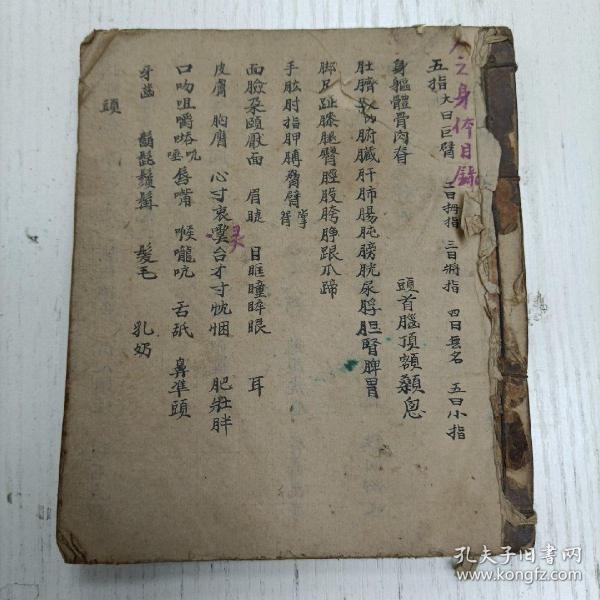 人之身体目録
五指 大曰巨臂 二曰拇指 三曰将指 四曰無名 五曰小指
身軀體骨肉脊 頭首腦頂額顙囟
肚臍 腑臟肝肺腸肫膀胱尿脬胆腎脾胃
脚足趾膝腿臀脛股胯脖跟爪蹄
手肱肘指胛膊臂掌
面臉朶頤厭面 眉睫 目眶瞳眸眼 耳
皮膚 胸膺 心寸衷灵台才寸忱悃 肥壯胖
口吻咀嚼吮唇嘴 喉嚨吭 舌舐 鼻準頭
牙齒 鬍髭鬚髯 髮毛 乳奶
頭
孔夫子旧書网
www.kongfz.com